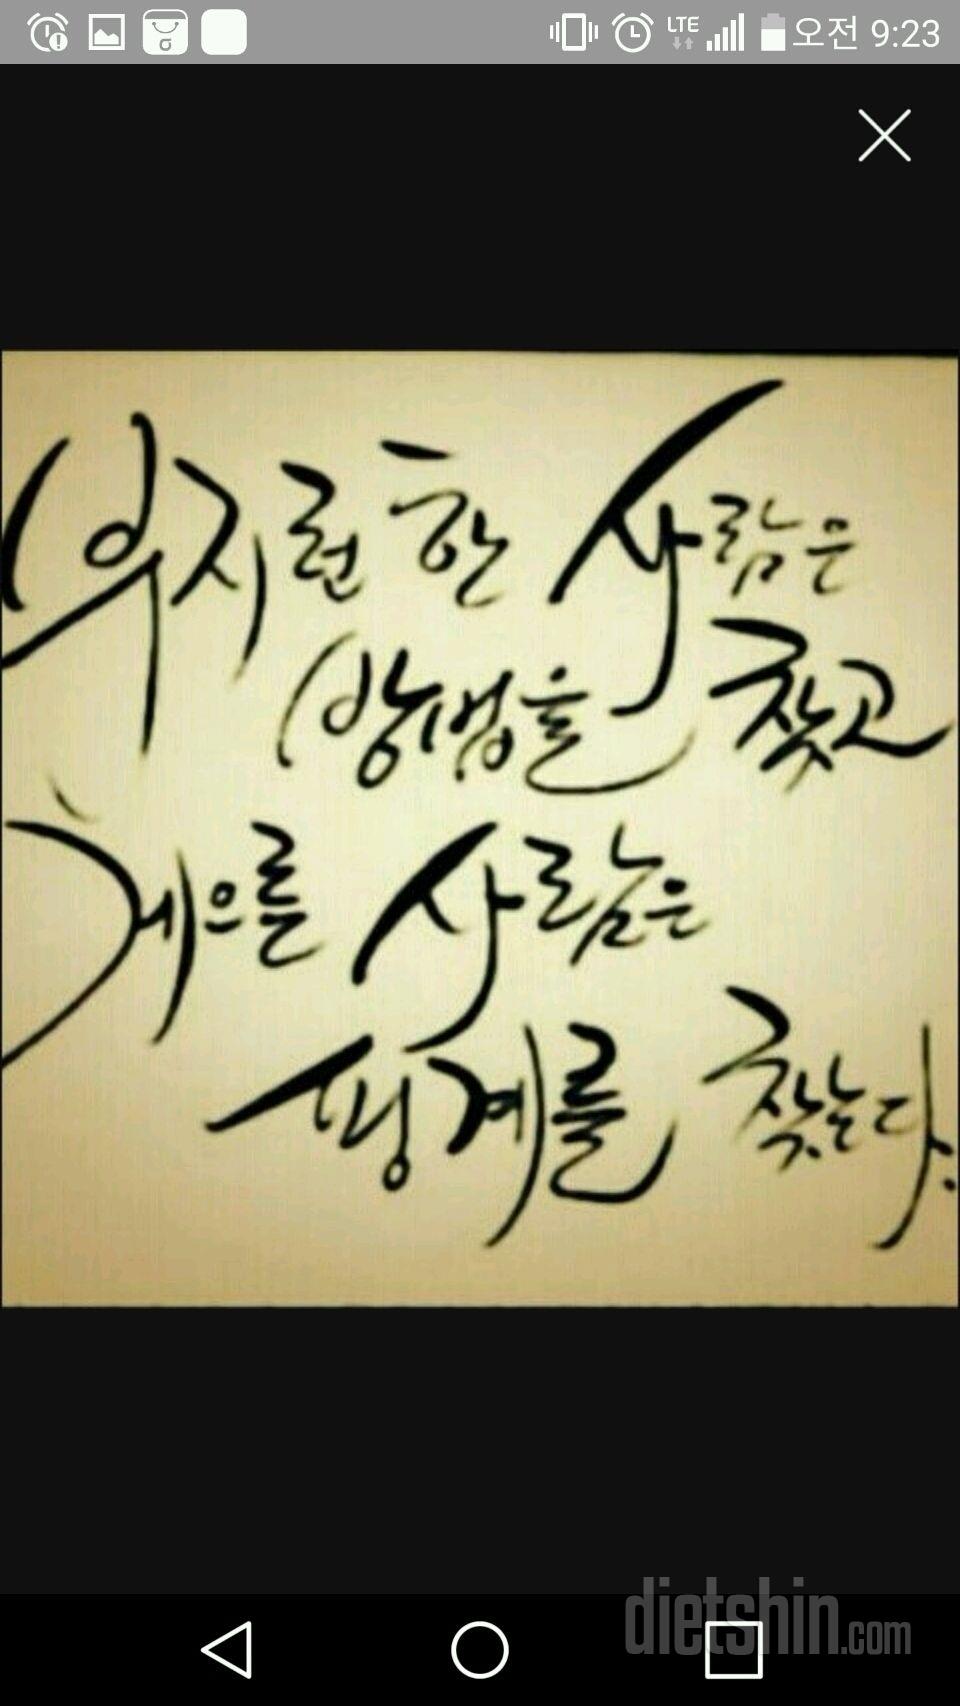 LTE 오전 9:23
부지런한 사람은
방법을 찾고
게으른 사람은
핑계를 찾는다.
dietshin.com